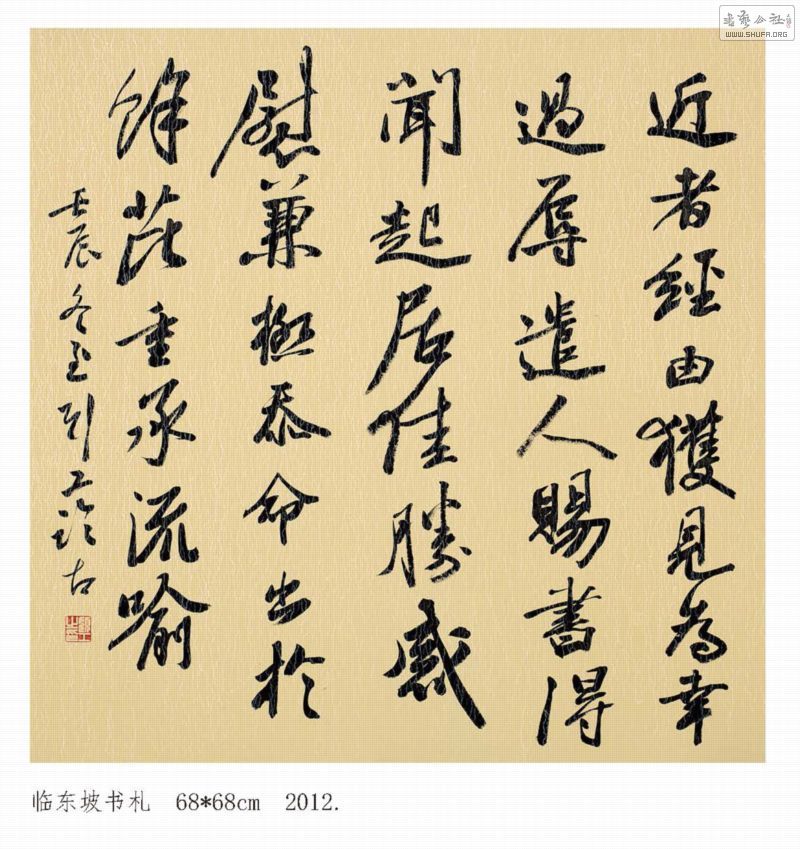 近者經由獲見為幸
過辱遣人賜書得
聞起居佳勝感
慰兼極忝命出於
餘芘重承流喻
壬辰冬至
临东坡书札 68*68cm 2012.
书艺公社
WWW.SHUFA.ORG